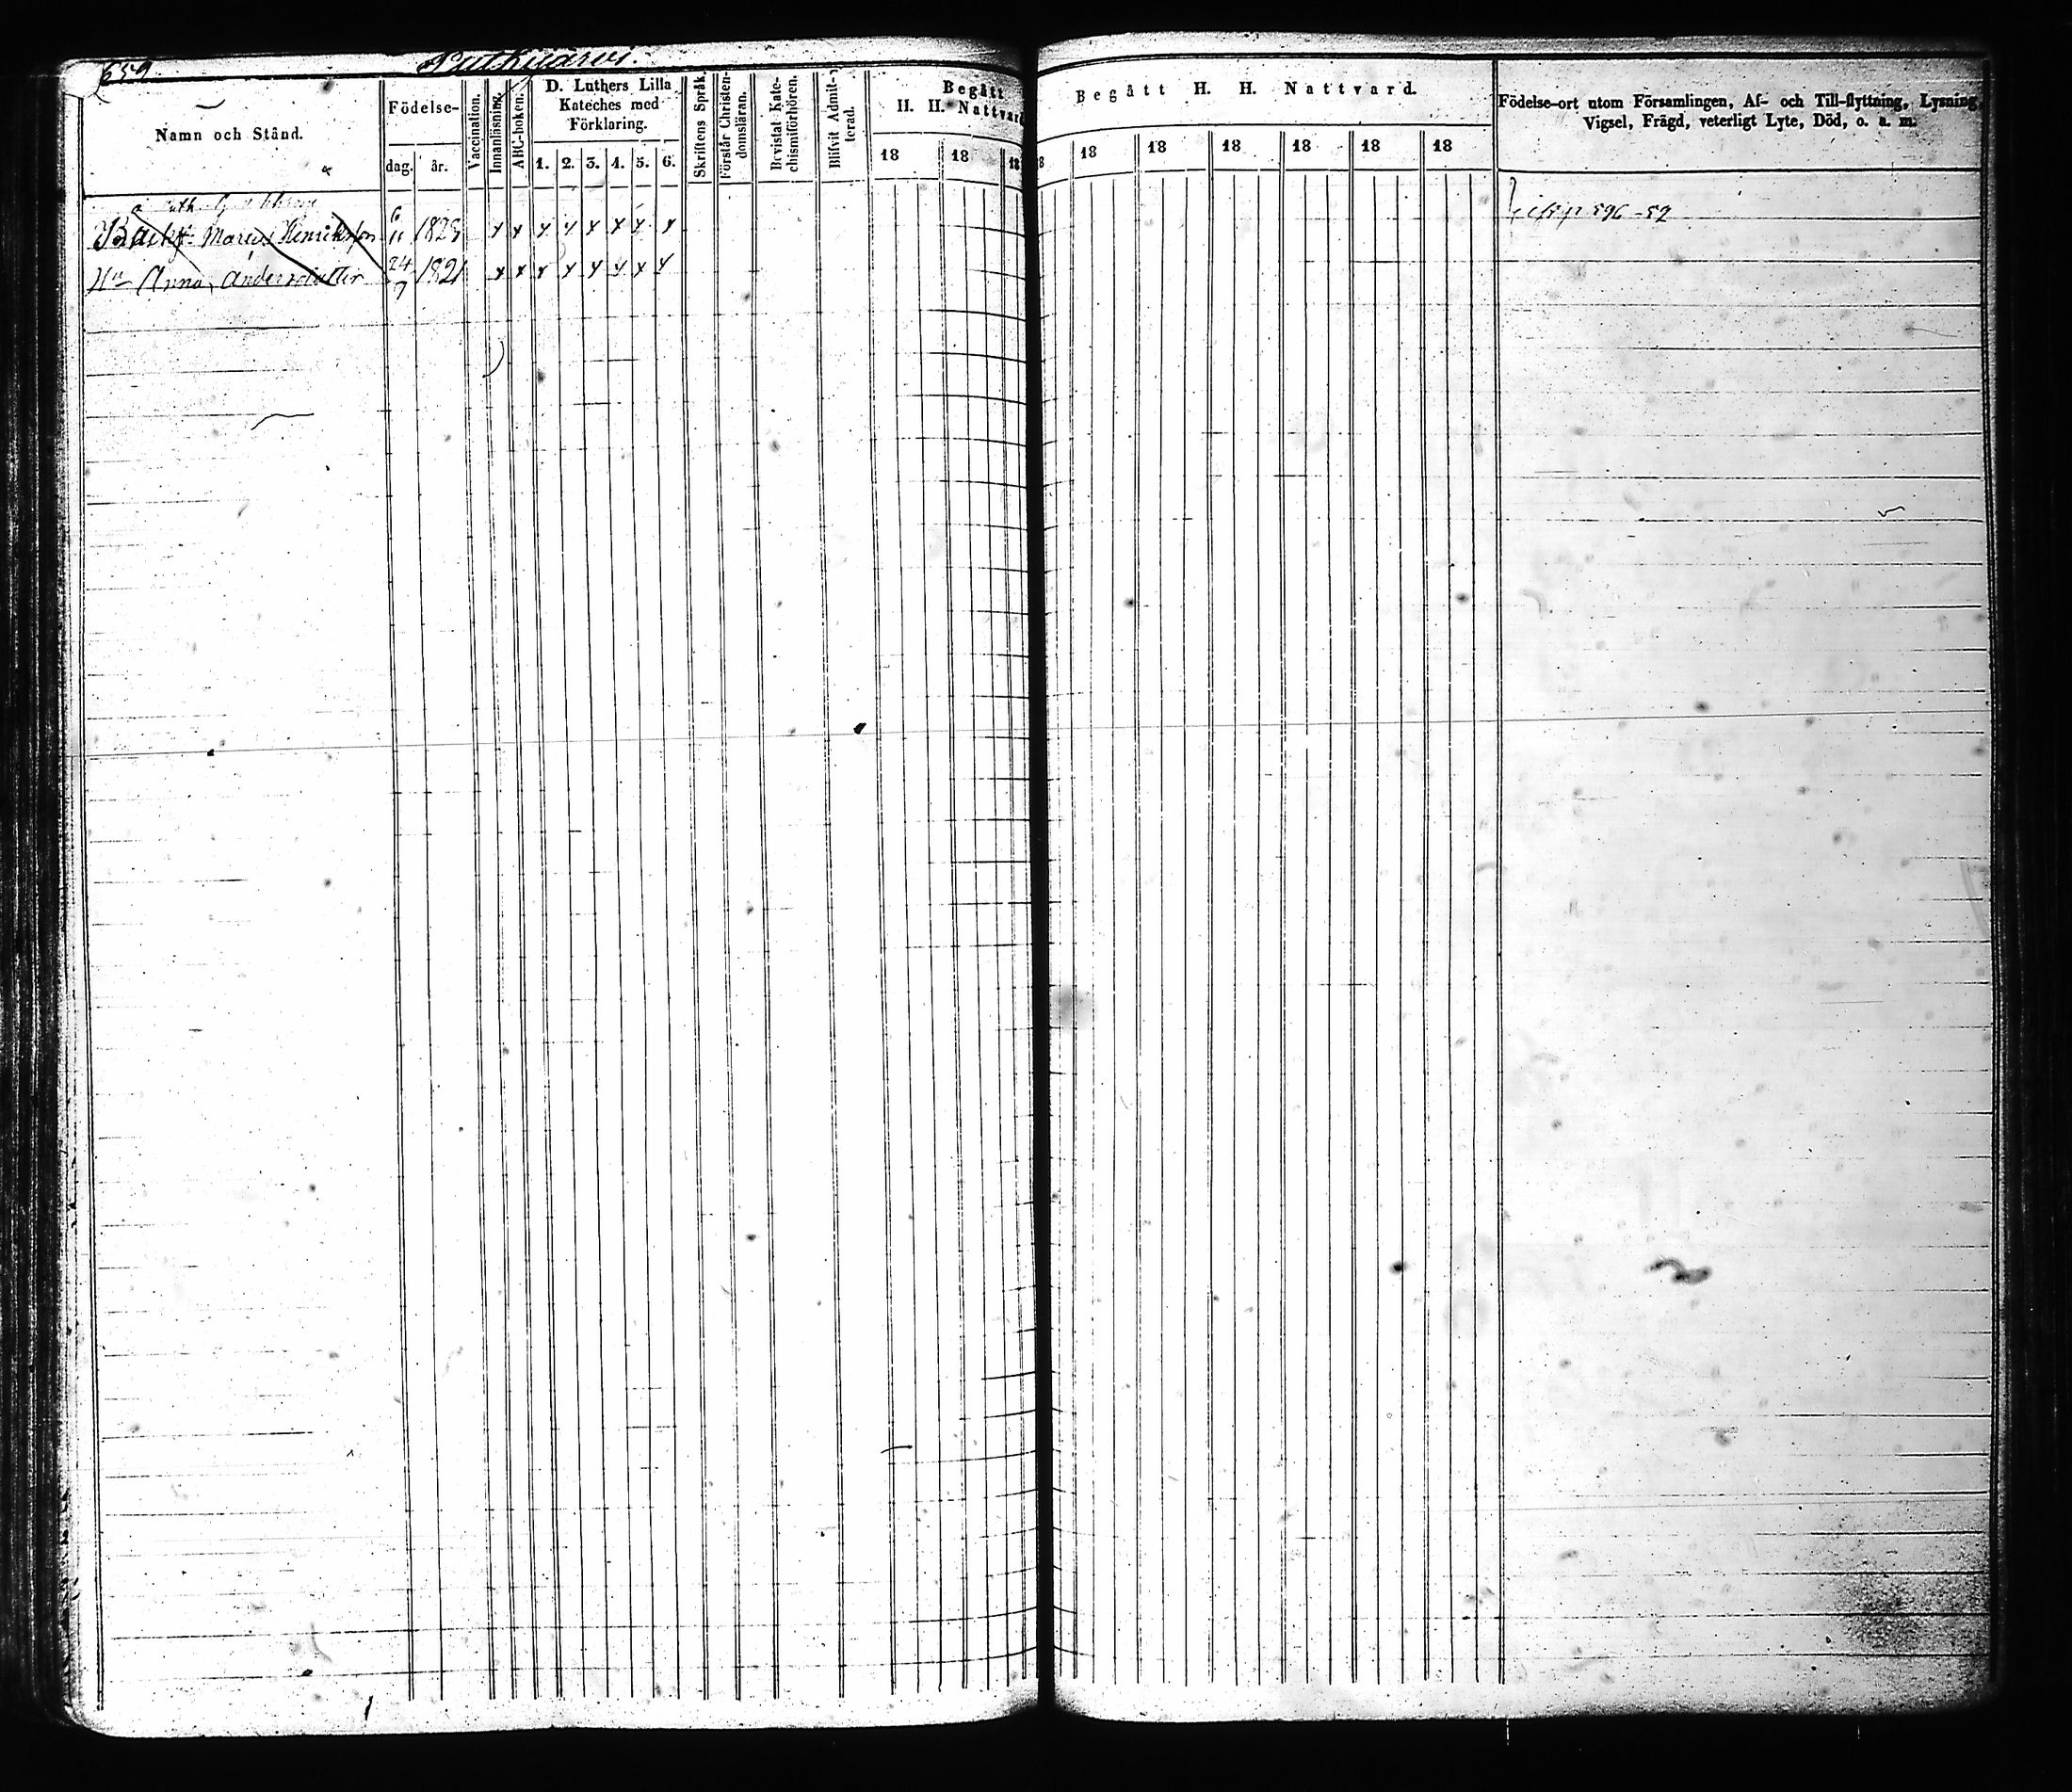 659.
Namn och Stånd.
Födelse-
dag. år.
Vaccination.
Innanläsning.
ABC-boken.
D. Luthers Lilla
Kateches med
Förklaring.
1. 2. 3. 4. 5. 6.
Skriftens Språk.
Förstår Christen-
domsläran.
Bevistat Kate-
chismiförhören.
Blifvit Admit-
terad.
Begått
H. H. Nattvard
18 18 18
Begått H. H. Nattvard.
8 18 18 18 18 18 18
Födelse-ort utom Församlingen, Af- och Till-flyttning, Lysning,
Vigsel, Frägd, veterligt Lyte, Död, o. a. m.
Henriksson 6/11 1829 x x x x x x x x
Hu Anna Andersdotter 24/7 1821 x x x x x x x x
596-52